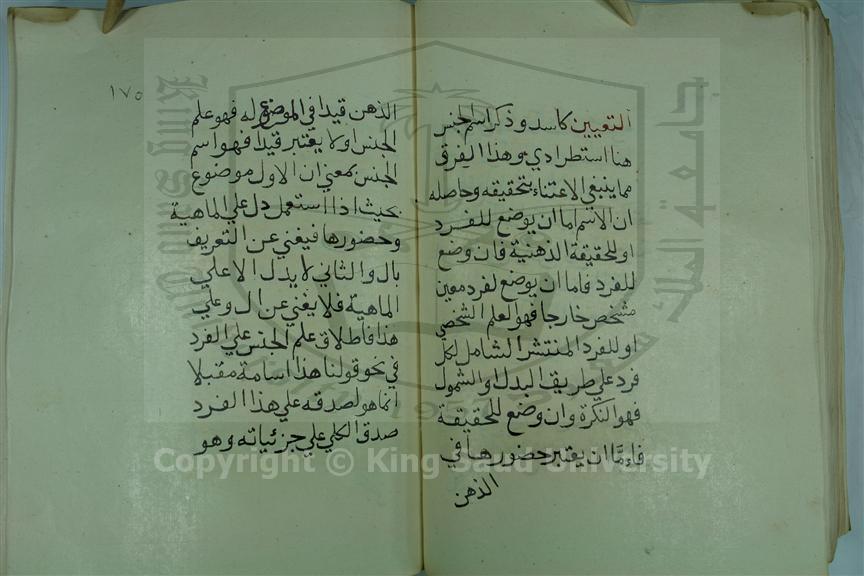 التعيين كاسد وذكر اسم الجنس
هنا استطرادي وهذا الفرق
مما ينبغي الاعتناء بتحقيقه وحاصله
ان الاسم اما ان يوضع للفرد
او للحقيقة الذهنية فان وضع
للفرد فاما ان يوضع لفرد معين
مشخص خارجا فهو العلم الشخصي
او للفرد المنتشر الشامل لكل
فرد علي طريق البدل او الشمول
فهو النكرة وان وضع للحقيقة
فاءمّا ان يعتبر حضورها في
الذهن
١٧٥
الذهن قيدا في الموضوع له فهو علم
الجنس او لا يعتبر قيدا فهو اسم
الجنس بمعني ان الاول موضوع
بحيث اذا استعمل دل علي الماهية
وحضورها فيغني عن التعريف
بال والثاني لا يدل الا علي
الماهية فلا يغني عن ال وعلي
هذا فاطلاق علم الجنس علي الفرد
في نحو قولنا هذا اسامة مقبلا
انما هو لصدقه علي هذا الفرد
صدق الكلي علي جزئياته وهو
Copyright © King Saud University
جامعة الملك سعود